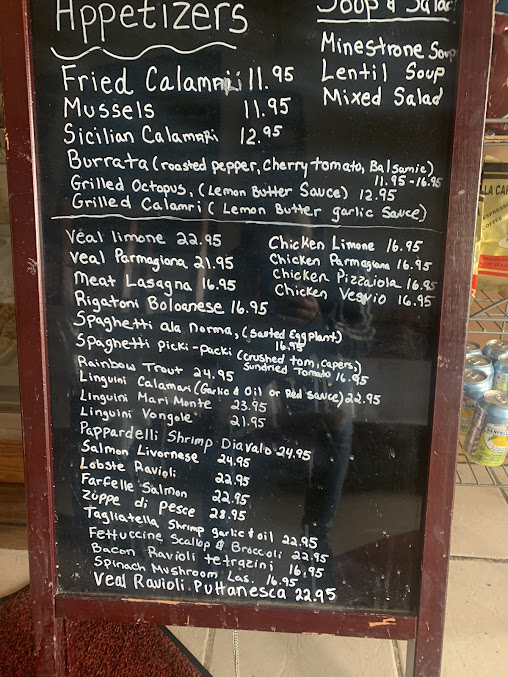 Appetizers
Fried Calamari 11.95
Mussels 11.95
Sicilian Calamari 12.95
Burrata (roasted pepper, Cherry tomato, Balsamic)
11.95-16.95
Grilled Octopus, (Lemon Butter Sauce) 12.95
Grilled Calamri (Lemon Butter garlic Sauce)
Soup & Salad
Minestrone Soup
Lentil Soup
Mixed Salad
Veal limone 22.95
Veal Parmagiana 21.95
Meat Lasagna 16.95
Rigatoni Boloanese 16.95
Spaghetti ala Norma, (Sauted Eggplant)
16.95
Spaghetti picki-packi (crushed tom, capers,)
Sundried Tomato 16.95
Rainbow Trout 24.95
Linguini Calamari (Garlic & Oil or Red Sauce) 22.95
Linguini Mari Monte 23.95
Linguini Vongole 21.95
Pappardelli Shrimp Diavalo 24.95
Salmon Livornese 24.95
Lobste Ravioli 22.95
Farfelle Salmon 22.95
Zuppe di Pesce 28.95
Tagliatella Shrimp garlic & oil 22.95
Fettuccine Scallop & Broccoli 22.95
Bacon Ravioli tetrazini 16.95
Spinach Mushroom Las. 16.95
Veal Ravioli Puttanesca 22.95
Chicken Limone 16.95
Chicken Parmagiana 16.95
Chicken Pizzaiola 16.95
Chicken Vesvio 16.95